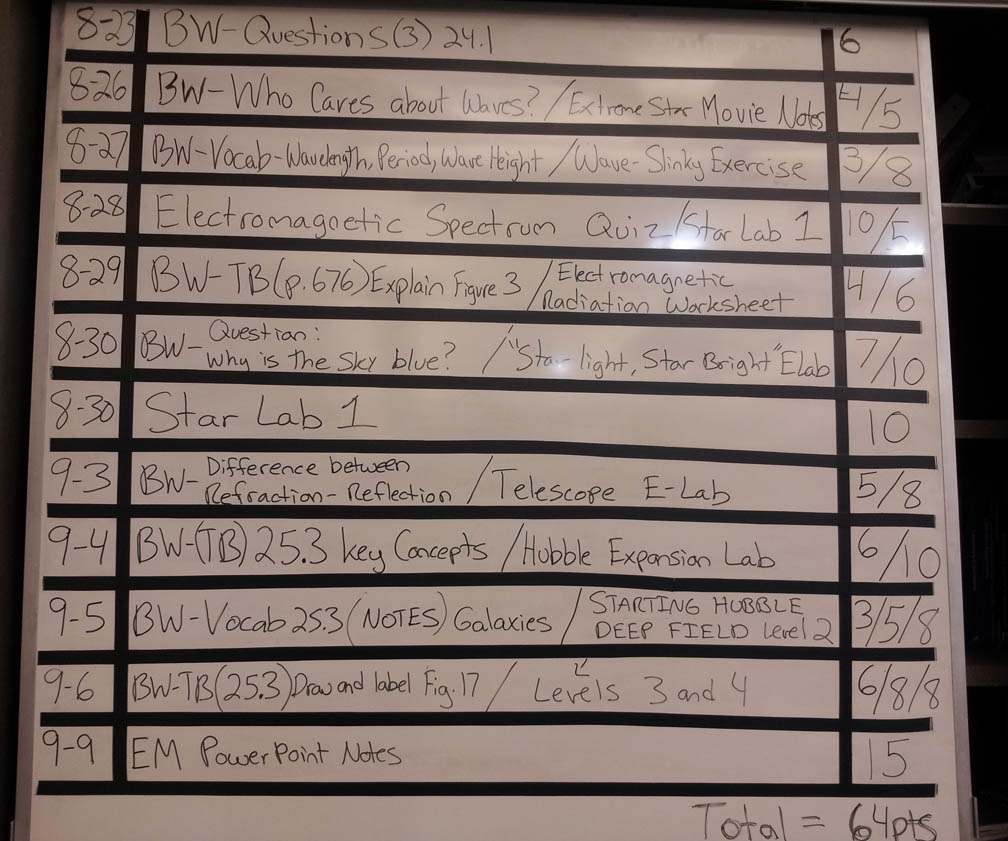 8-23 BW-Questions(3) 24.1 6
8-26 BW-Who Cares about Waves? / Extreme Star Movie Notes 4/5
8-27 BW-Vocab-Wavelength, Period, Wave Height / Wave-Slinky Exercise 3/8
8-28 Electromagnetic Spectrum Quiz/Star Lab 1 10/5
8-29 BW-TB(p.676) Explain Figure 3 / Electromagnetic
Radiation Worksheet 4/6
8-30 BW- Question:
Why is the Sky blue? / "Star light, Star Bright" Elab 7/10
8-30 Star Lab 1 10
9-3 BW- Difference between
Refraction-Reflection / Telescope E-Lab 5/8
9-4 BW-(TB) 25.3 key Concepts / Hubble Expansion Lab 6/10
9-5 BW-Vocab 25.3 (NOTES) Galaxies / STARTING HUBBLE
DEEP FIELD Level 2 3/5/8
9-6 BW-TB(25.3) Draw and label Fig. 17 / Levels 3 and 4 6/8/8
9-9 EM PowerPoint Notes 15
Total = 64pts